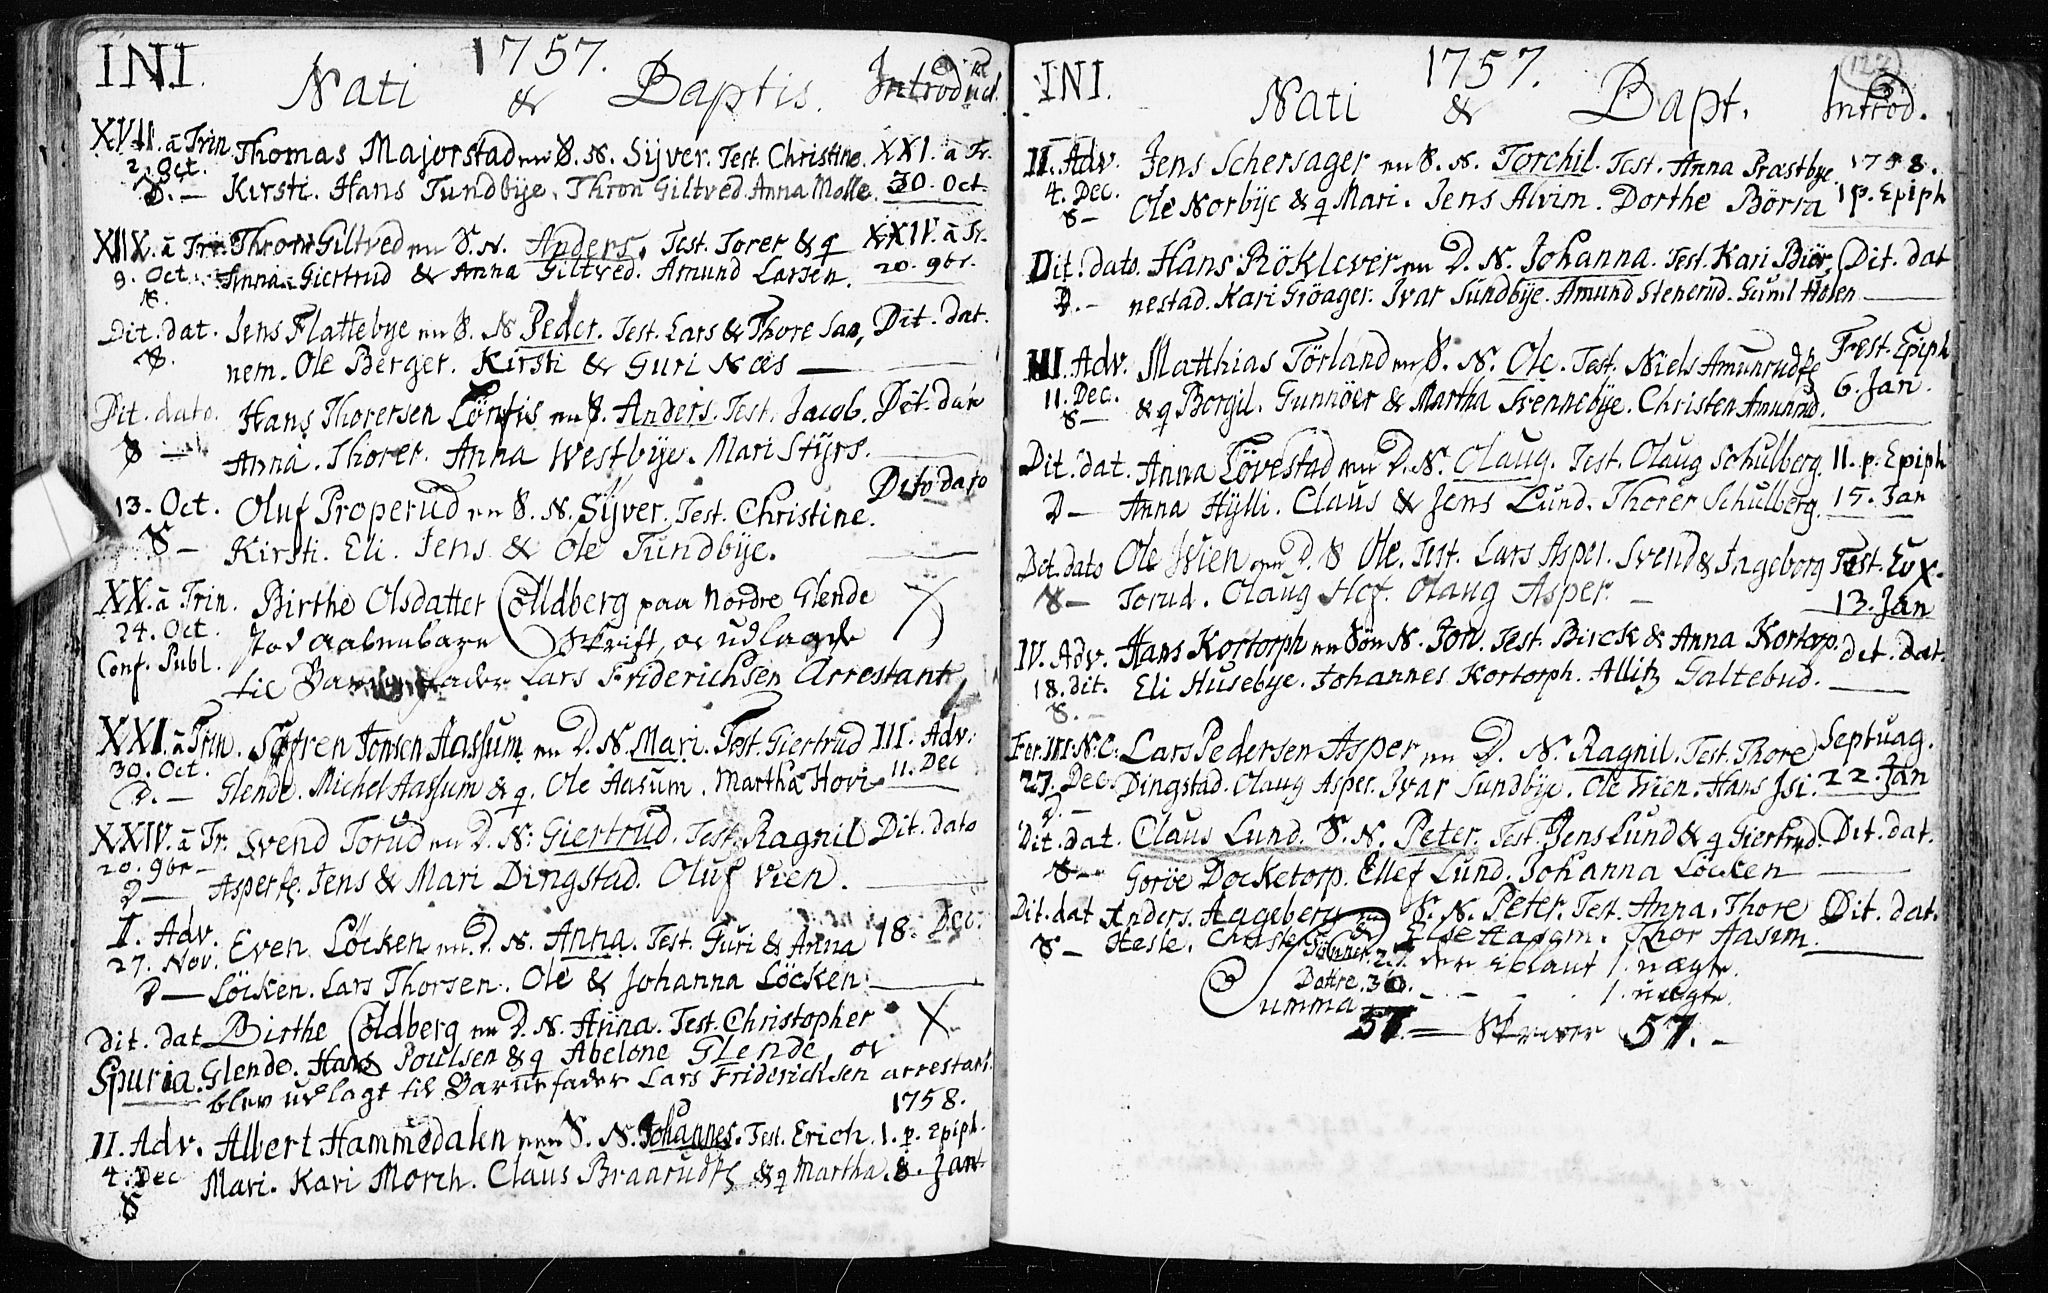 INI. 1757.
Nati & Baptis. Introduct.
XVII. à Trin Thomas Majorstad en S. N. Syver. Test. Christine. XXI. à Tr.
2. Oct.
S. — Kirsti. Hans Sundbye. Thron Giltved Anna Molle. 30. Oct.
XIIX. à Trin Thron Giltved en S. N. Anders. Test. Torer & q XXIV. à Tr.
9. Oct. Anna. Giertrud & Anna Giltved. Amund Larsen. 20. 9br.
S.
Dit. dat. Jens Flattebye en S. N. Peder. Test. Lars & Thore San, Dit. dat.
S. nem. Ole Berger. Kirsti & Guri Næs —
Dit. dato. Hans Thorersen en S. Anders. Test. Jacob. Dit. dat
S — Anna. Thorer. Anna Westbye. Mari Styrs.
13. Oct. Oluf Properud en S. N. Syver. Test. Christine. Dito dato
S — Kirsti. Eli. Jens & Ole Sundbye.
XX. à Trin. Birthe Olsdatter Colldberg paa Nordre Glende X
24. Oct. stod aabenbare Skrift, oc udlagde
Conf. Publ. til Barnefader Lars Friderichsen Arrestant
XXI. à Trin. Søfren Jonsen Aassum en D. N. Mari. Test. Giertrud III. Adv.
30. Oct.
D. — Glende. Michel Aassum & q. Ole Aasum. Martha Hovi 11. Dec
XXIV. à Tr. Svend Torud en D. N. Giertrud. Test. Ragnil Dit. dato
20. 9br —
D — Asper. Jens & Mari Dingstad. Oluf Vien.
I. Adv. Even Löcken en D. N. Anna. Test. Guri & Anna 18. Dec.
27. Nov.
D — Löcken. Lars Thorsen. Ole & Johanna Löcken
Dit. dat Birthe Coldberg en D. N. Anna. Test. Christopher X
Spuria. Glende. Hans Poulsen & q Abelone Glende, oc
blev udlagt til Barnefader Lars Friderichsen arrestant.
1758.
II. Adv. Albert Hammedalen en S. N. Johannes. Test. Erich. 1. p. Epiph.
4. Dec Mari. Kari Morch. Claus Braarud & q Martha. 8. Jan
S
INI. 1757. 122
Nati & Bapt. Introd.
II. Adv. Jens Schersager en S. N. Torchil. Test. Anna Præstbye 1758.
4. Dec.
S — Ole Norbye & q Mari. Jens Alvim. Dorthe Börra 1 p. Epiph
Dit. dato. Hans Röklever en D. N. Johanna. Test. Kari Biör, Dit. dat
D. — nestad. Kari Gröager. Ivar Sundbye. Amund Stenerud. Gunil Holen
III. Adv. Matthias Törland en S. N. Ole. Test. Niels Amunrud Fest. Epiph
11. Dec. 6. Jan.
S — & q Borgil. Gunnöer & Martha Svennebye. Christen Amunrud.
Dit. dat. Anna Lövestad en D. N. Olaug. Test. Olaug Schulberg. 11. p. Epiph
D — Anna Hylli. Claus & Jens Lund. Thorer Schulberg. 15. Jan
Dit. dato Ole Wien S Ole. Test. Lars Asper. Svend & Ingeborg Fest. Ev X.
S — Torud. Olaug Hof. Olaug Asper. — 13. Jan
IV. Adv. Hans Kortorph en Sön N. Jon. Test. Birck & Anna Kortorp. dit. dat.
18. dit. Eli Husebye. Johannes Kortorph. Allitz Galtebud.
S. —
Fer. III N. C. Lars Pedersen Asper en D. N. Ragnil. Test. Thore Septuag.
27. Dec. Dingstad. Olaug Asper. Ivar Sundbye. Ole Wien. Hans Isi. 22. Jan
D. —
Dit. dat. Claus Lund. S. N. Peter. Test. Jens Lund & q Giertrud. Dit. dat.
S — Goröe Docketorp. Ellef Lund. Johanna Löcken
Dit. dat Anders Aggeberg en S. N. Peter. Test. Anna. Thore Dit. dat.
S — Hesle. & Else Aasum. Thor Aasum.
Sönner. 27. der iblant 1. uægte.
Dottre. 30. — — — 1. uægte.
Summa 57. — Skriver 57. —